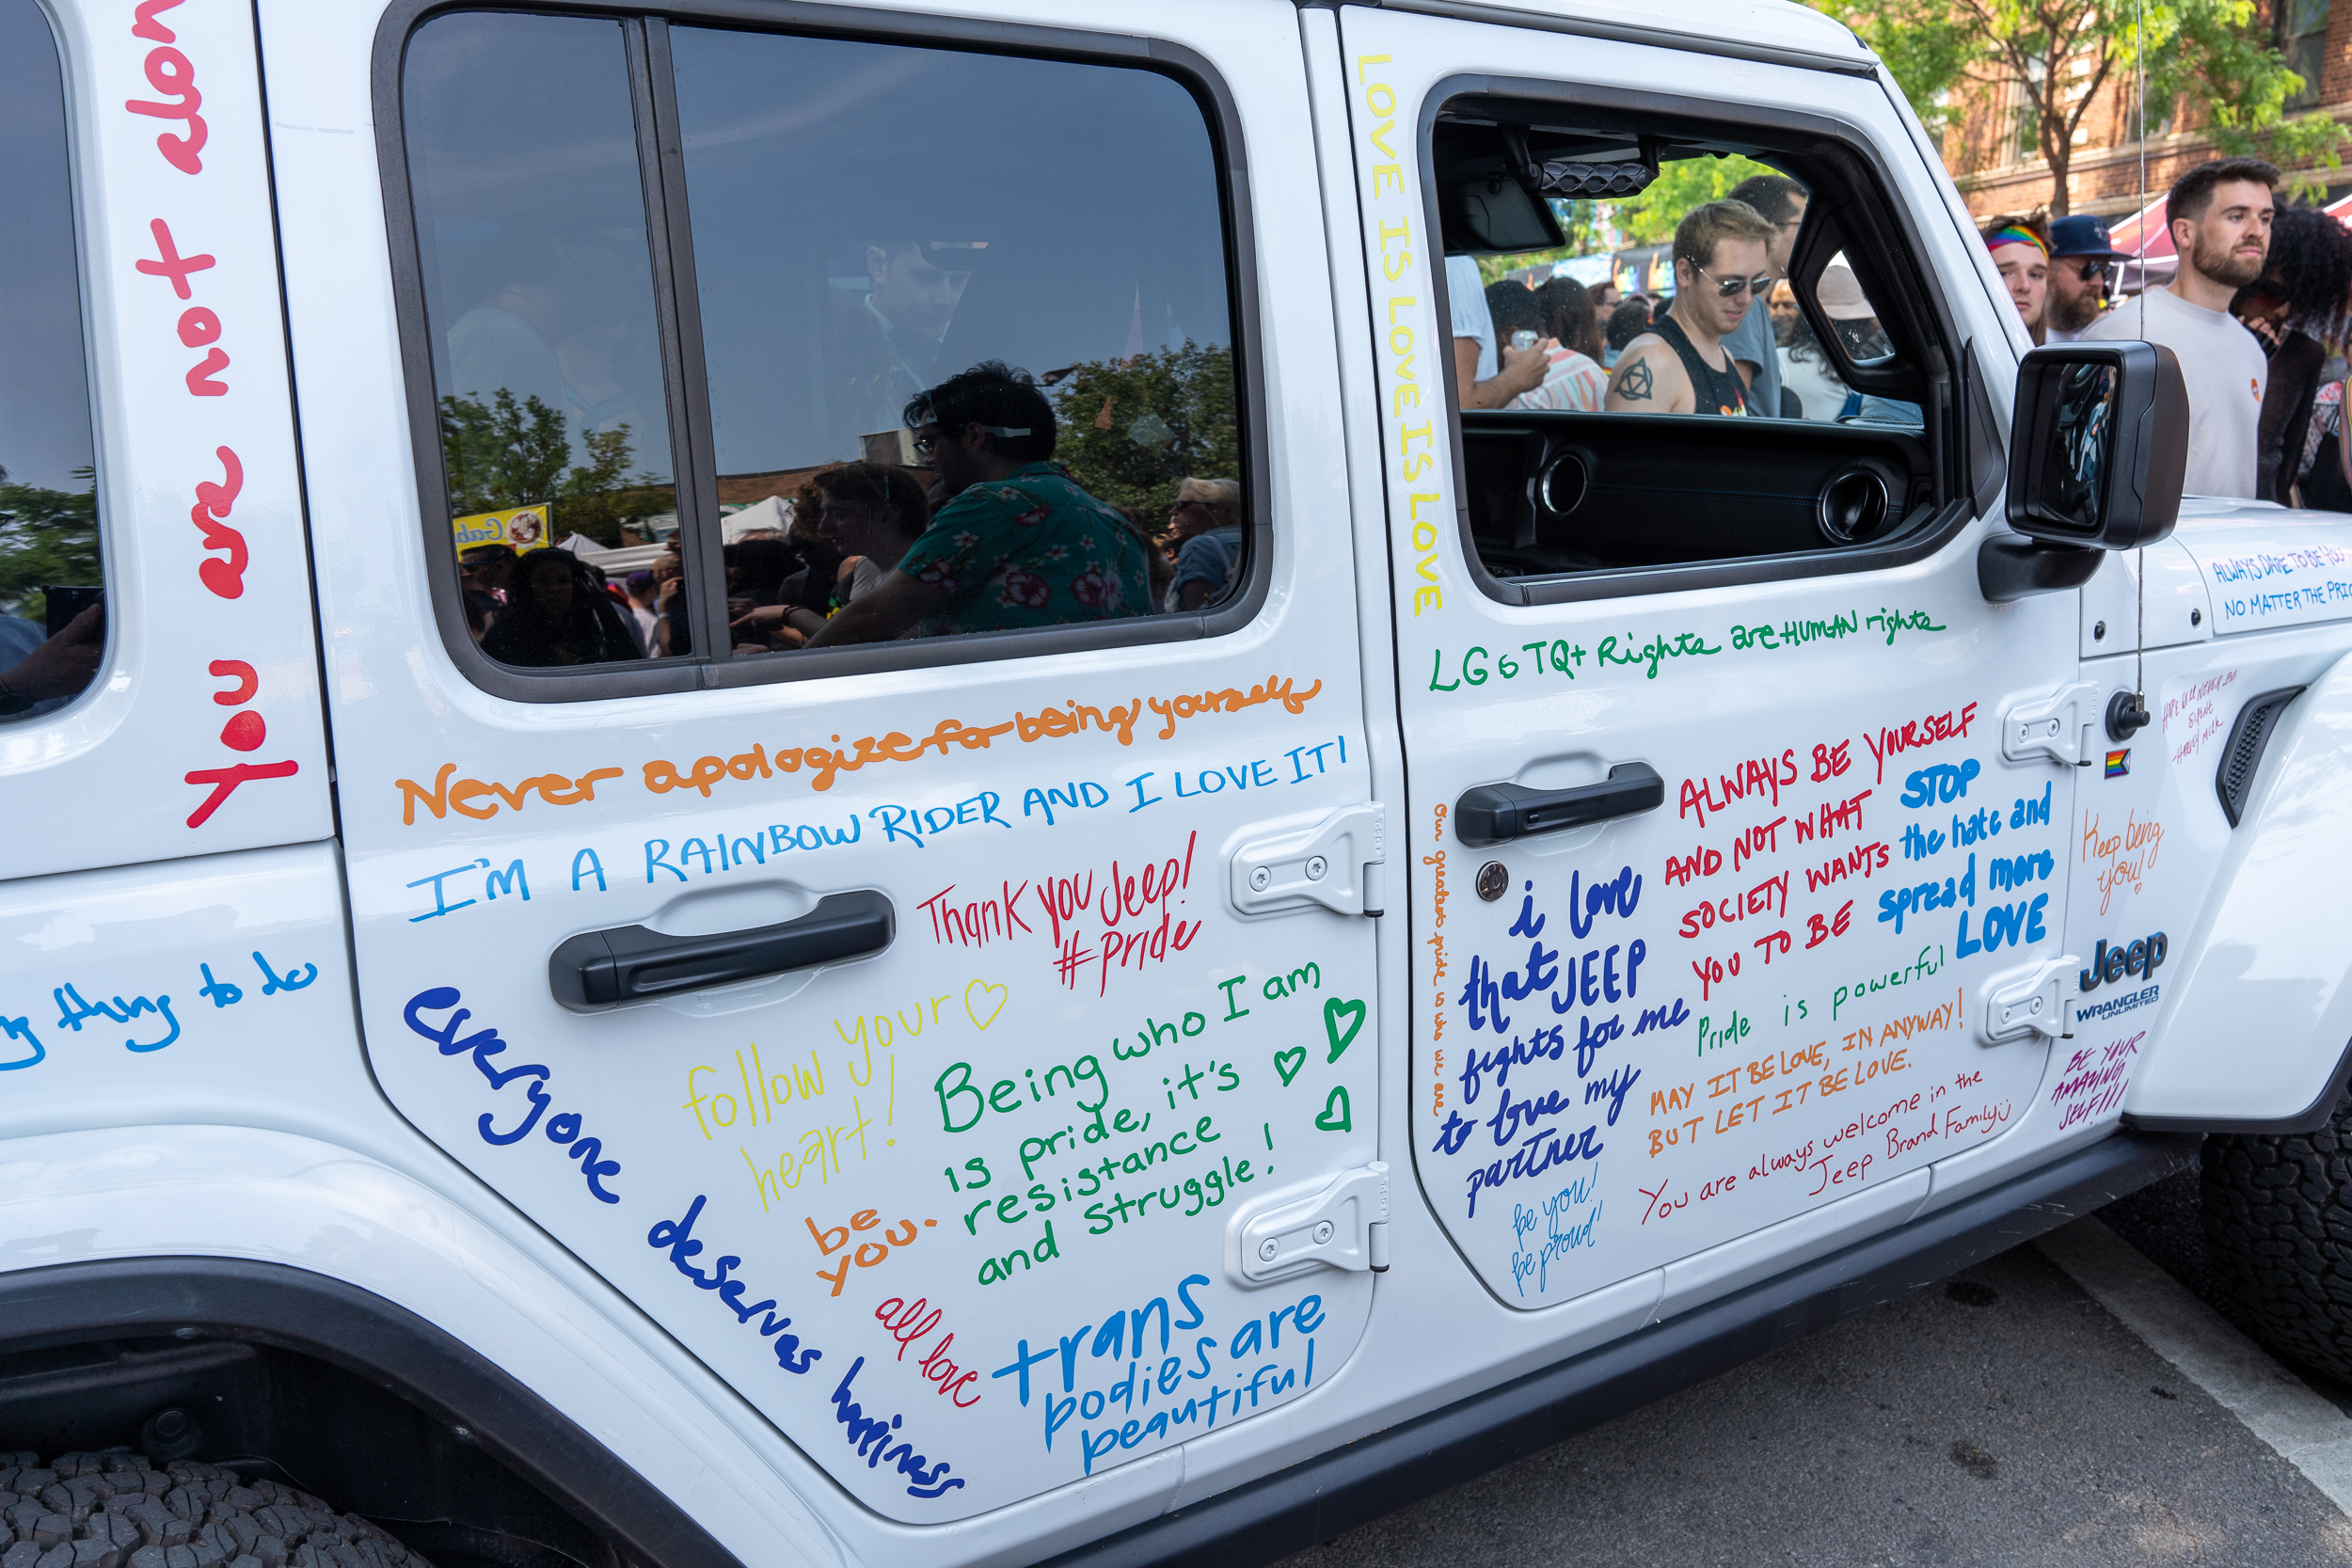 You are not alon
g thing to do
Never apologize for being yourself
I'M A RAINBOW RIDER AND I LOVE IT!
Thank you Jeep!
#Pride
everyone deserves happiness
follow your
heart!
Being who I am
is pride, it's
resistance
and struggle!
be
you.
all love
trans
bodies are
beautiful
LOVE IS LOVE IS LOVE IS LOVE
LGBTQ+ Rights are HUMAN rights
Our greatest pride is who we are
i love
that JEEP
fights for me
to love my
partner
ALWAYS BE YOURSELF
AND NOT WHAT
SOCIETY WANTS
YOU TO BE
STOP
the hate and
spread more
LOVE
Pride is powerful
MAY IT BE LOVE, IN ANYWAY!
BUT LET IT BE LOVE.
You are always welcome in the
Jeep Brand Family
be you!
be proud!
ALWAYS DARE TO BE YOU
NO MATTER THE PRIC
HOPE WILL NEVER BE
SILENT
-HARVEY MILK
Keep being
you!
Jeep
WRANGLER
UNLIMITED
BE YOUR
AMAZING
SELF!!!